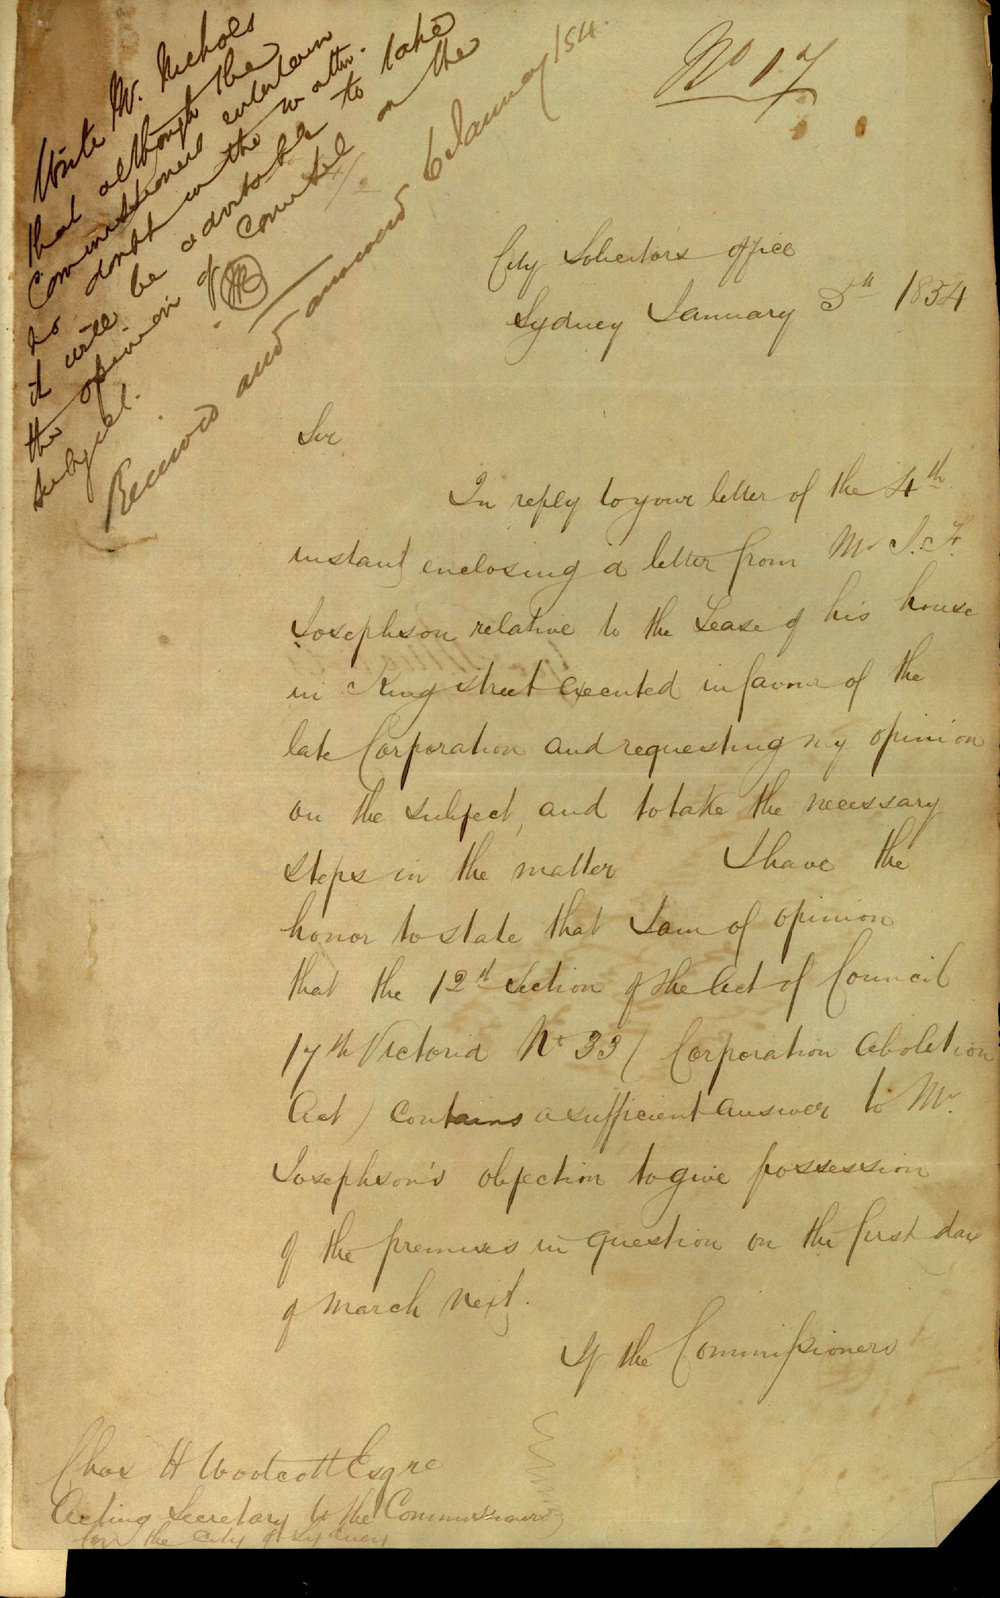 No 17
Write Mr. Nichols
that although the
Commissioners entertain
no doubt in the matter.
it will be advisable to take
the opinion of Counsel on the
subject.
Received and answered 6 January /54.
City Solicitor's office
Sydney January 5th 1854
Sir
In reply to your letter of the 4th
instant enclosing a letter from Mr J. F.
Josephson relative to the Lease of his house
in King street executed in favour of the
late Corporation and requesting my opinion
on the subject, and to take the necessary
steps in the matter I have the
honor to state that I am of opinion
that the 12th Section of the Act of Council
17th Victoria No 33 ( Corporation abolition
Act ) contains a sufficient answer to Mr
Josephson's objection to give possession
of the premises in question on the first day
of March next.
If the Commissioners
Chas H Woolcott Esqre
Acting Secretary to the Commissioners
for the City of Sydney